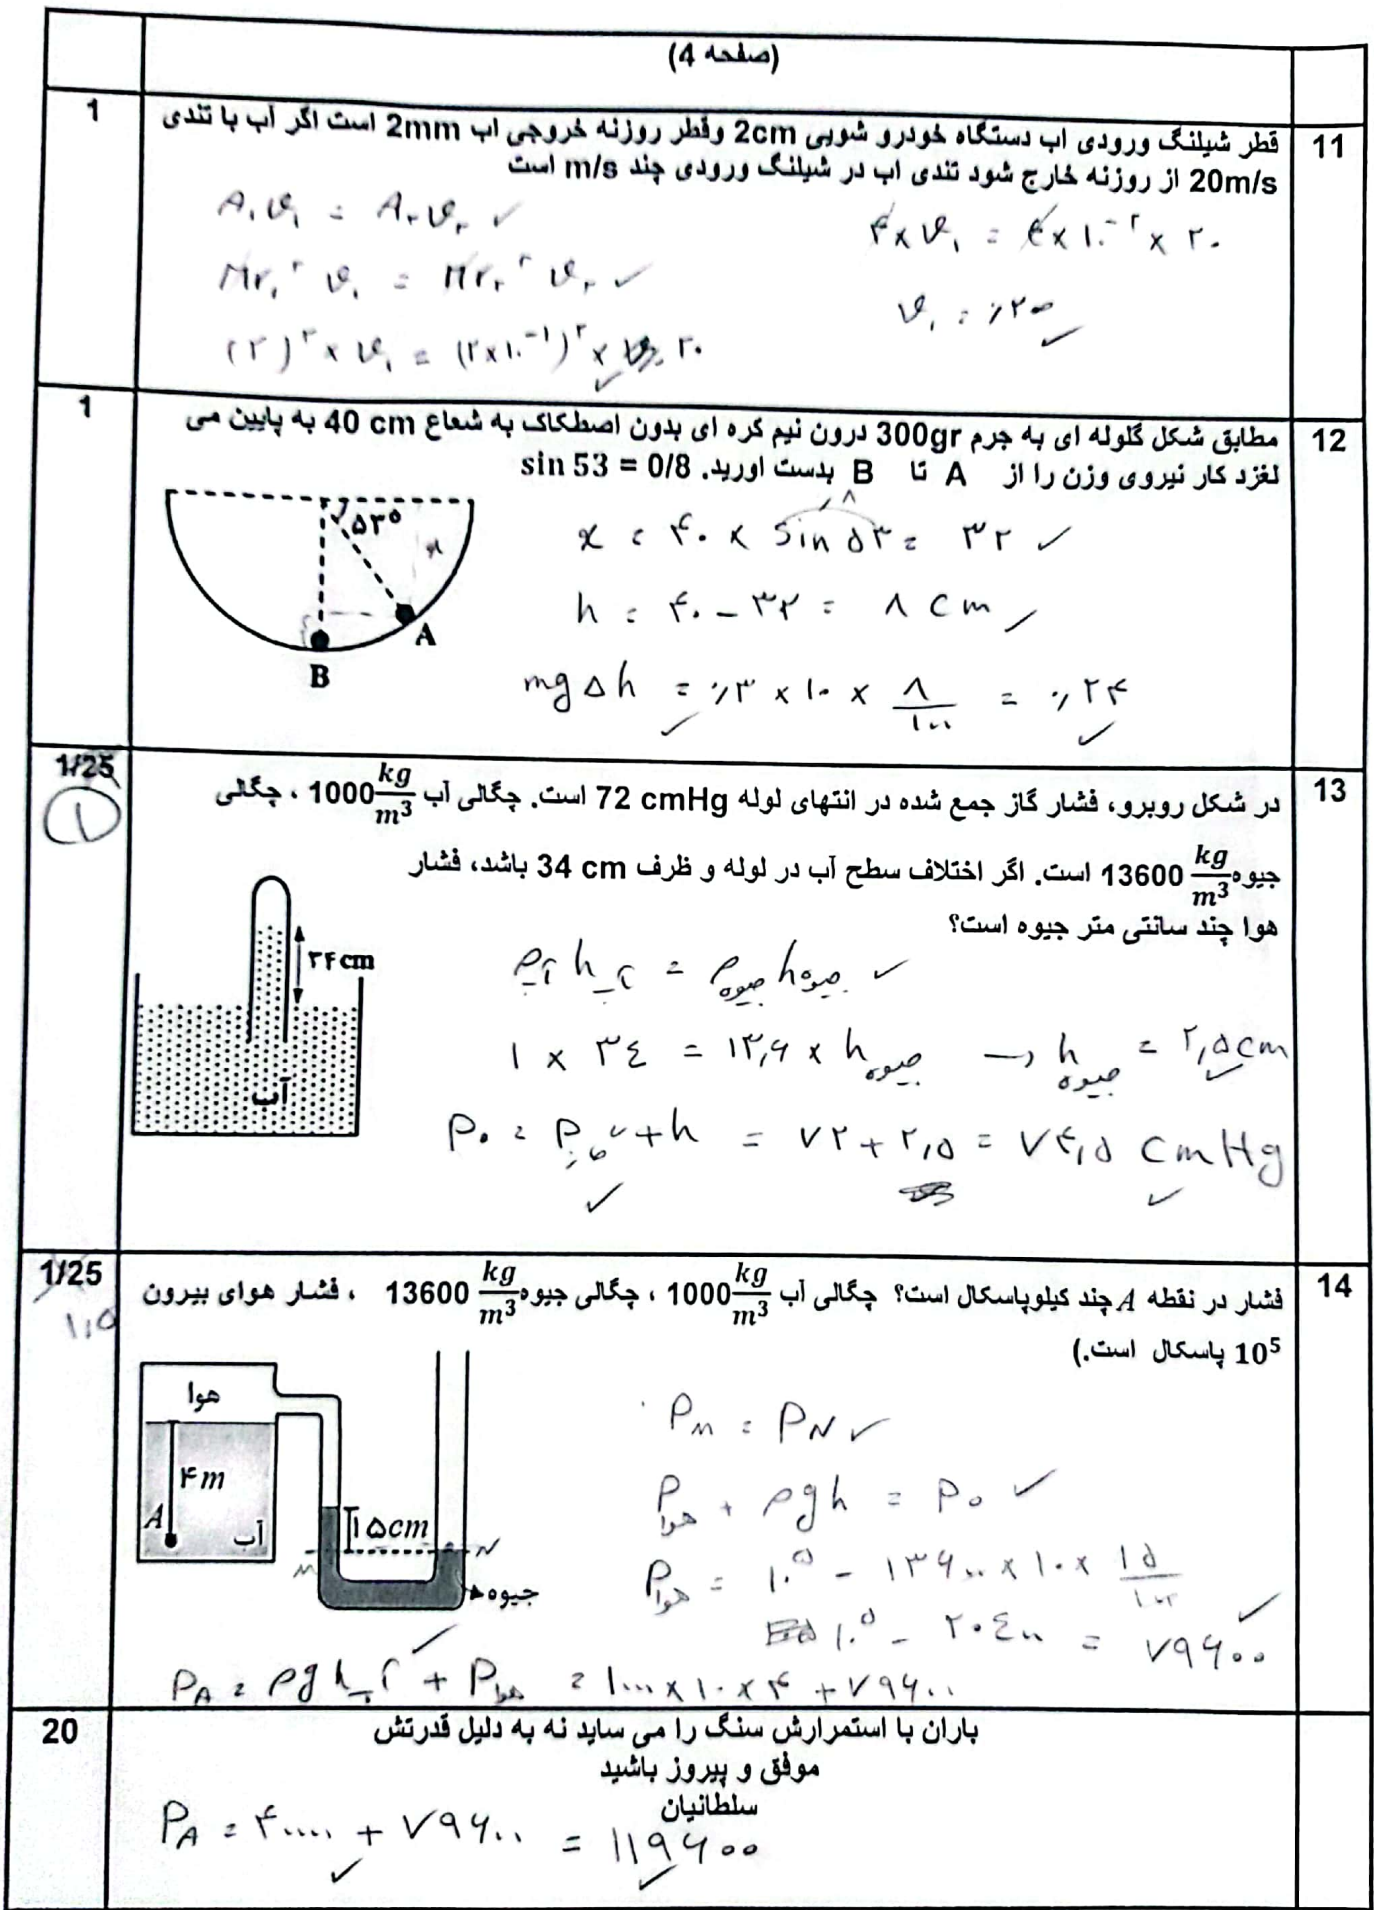 (صفحه 4)
11
1
قطر شیلنگ ورودی اب دستگاه خودرو شویی 2cm وقطر روزنه خروجی اب 2mm است اگر آب با تندی
20m/s از روزنه خارج شود تندی اب در شیلنگ ورودی چند m/s است
A₁v₁ = A₂v₂ ✓
πr₁² v₁ = πr₂² v₂ ✓
(۲)² × v₁ = (۲×۱۰⁻¹)² × ۲۰ ✓
۴ × v₁ = ۴ × ۱۰⁻² × ۲۰
v₁ = ٪۲۰ ✓
12
1
مطابق شکل گلوله ای به جرم 300gr درون نیم کره ای بدون اصطکاک به شعاع 40 cm به پایین می
لغزد کار نیروی وزن را از A تا B بدست اورید. sin 53 = 0/8
۵۳°
x
A
B
٫۸
x = ۴۰ × sin ۵۳ = ۳۲ ✓
h = ۴۰ - ۳۲ = ۸ cm ✓
mgΔh = ٪۳ × ۱۰ × ۸/۱۰۰ = ٪۲۴ ✓
13
1/25
1
در شکل روبرو، فشار گاز جمع شده در انتهای لوله 72 cmHg است. چگالی آب 1000 kg/m³ ، چگالی
جیوه 13600 kg/m³ است. اگر اختلاف سطح آب در لوله و ظرف 34 cm باشد، فشار
هوا چند سانتی متر جیوه است؟
۳۴ cm
آب
ρآب hآب = ρجیوه hجیوه ✓
۱ × ۳٤ = ۱۳٫۶ × hجیوه → hجیوه = ۲٫۵ cm ✓
P₀ = Pگاز + h = ۷۲ + ۲٫۵ = ۷۴٫۵ cmHg ✓
14
1/25
۱٫۵
فشار در نقطه A چند کیلوپاسکال است؟ چگالی آب 1000 kg/m³ ، چگالی جیوه 13600 kg/m³ ، فشار هوای بیرون
10⁵ پاسکال است.)
هوا
۴m
A
آب
۱۵cm
M
N
جیوه
P_M = P_N ✓
Pهوا + ρgh = P₀ ✓
Pهوا = ۱۰⁵ - ۱۳۶۰۰ × ۱۰ × ۱۵/۱۰۰
۱۰⁵ - ۲۰٤۰۰ = ۷۹۶۰۰ ✓
P_A = ρghآب + Pهوا = ۱۰۰۰ × ۱۰ × ۴ + ۷۹۶۰۰
20
باران با استمرارش سنگ را می ساید نه به دلیل قدرتش
موفق و پیروز باشید
سلطانیان
P_A = ۴۰۰۰۰ + ۷۹۶۰۰ = ۱۱۹۶۰۰ ✓